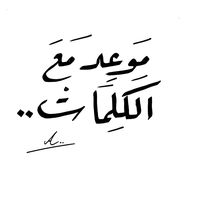 مَوعِد مَعَ
الكَلِمَات..